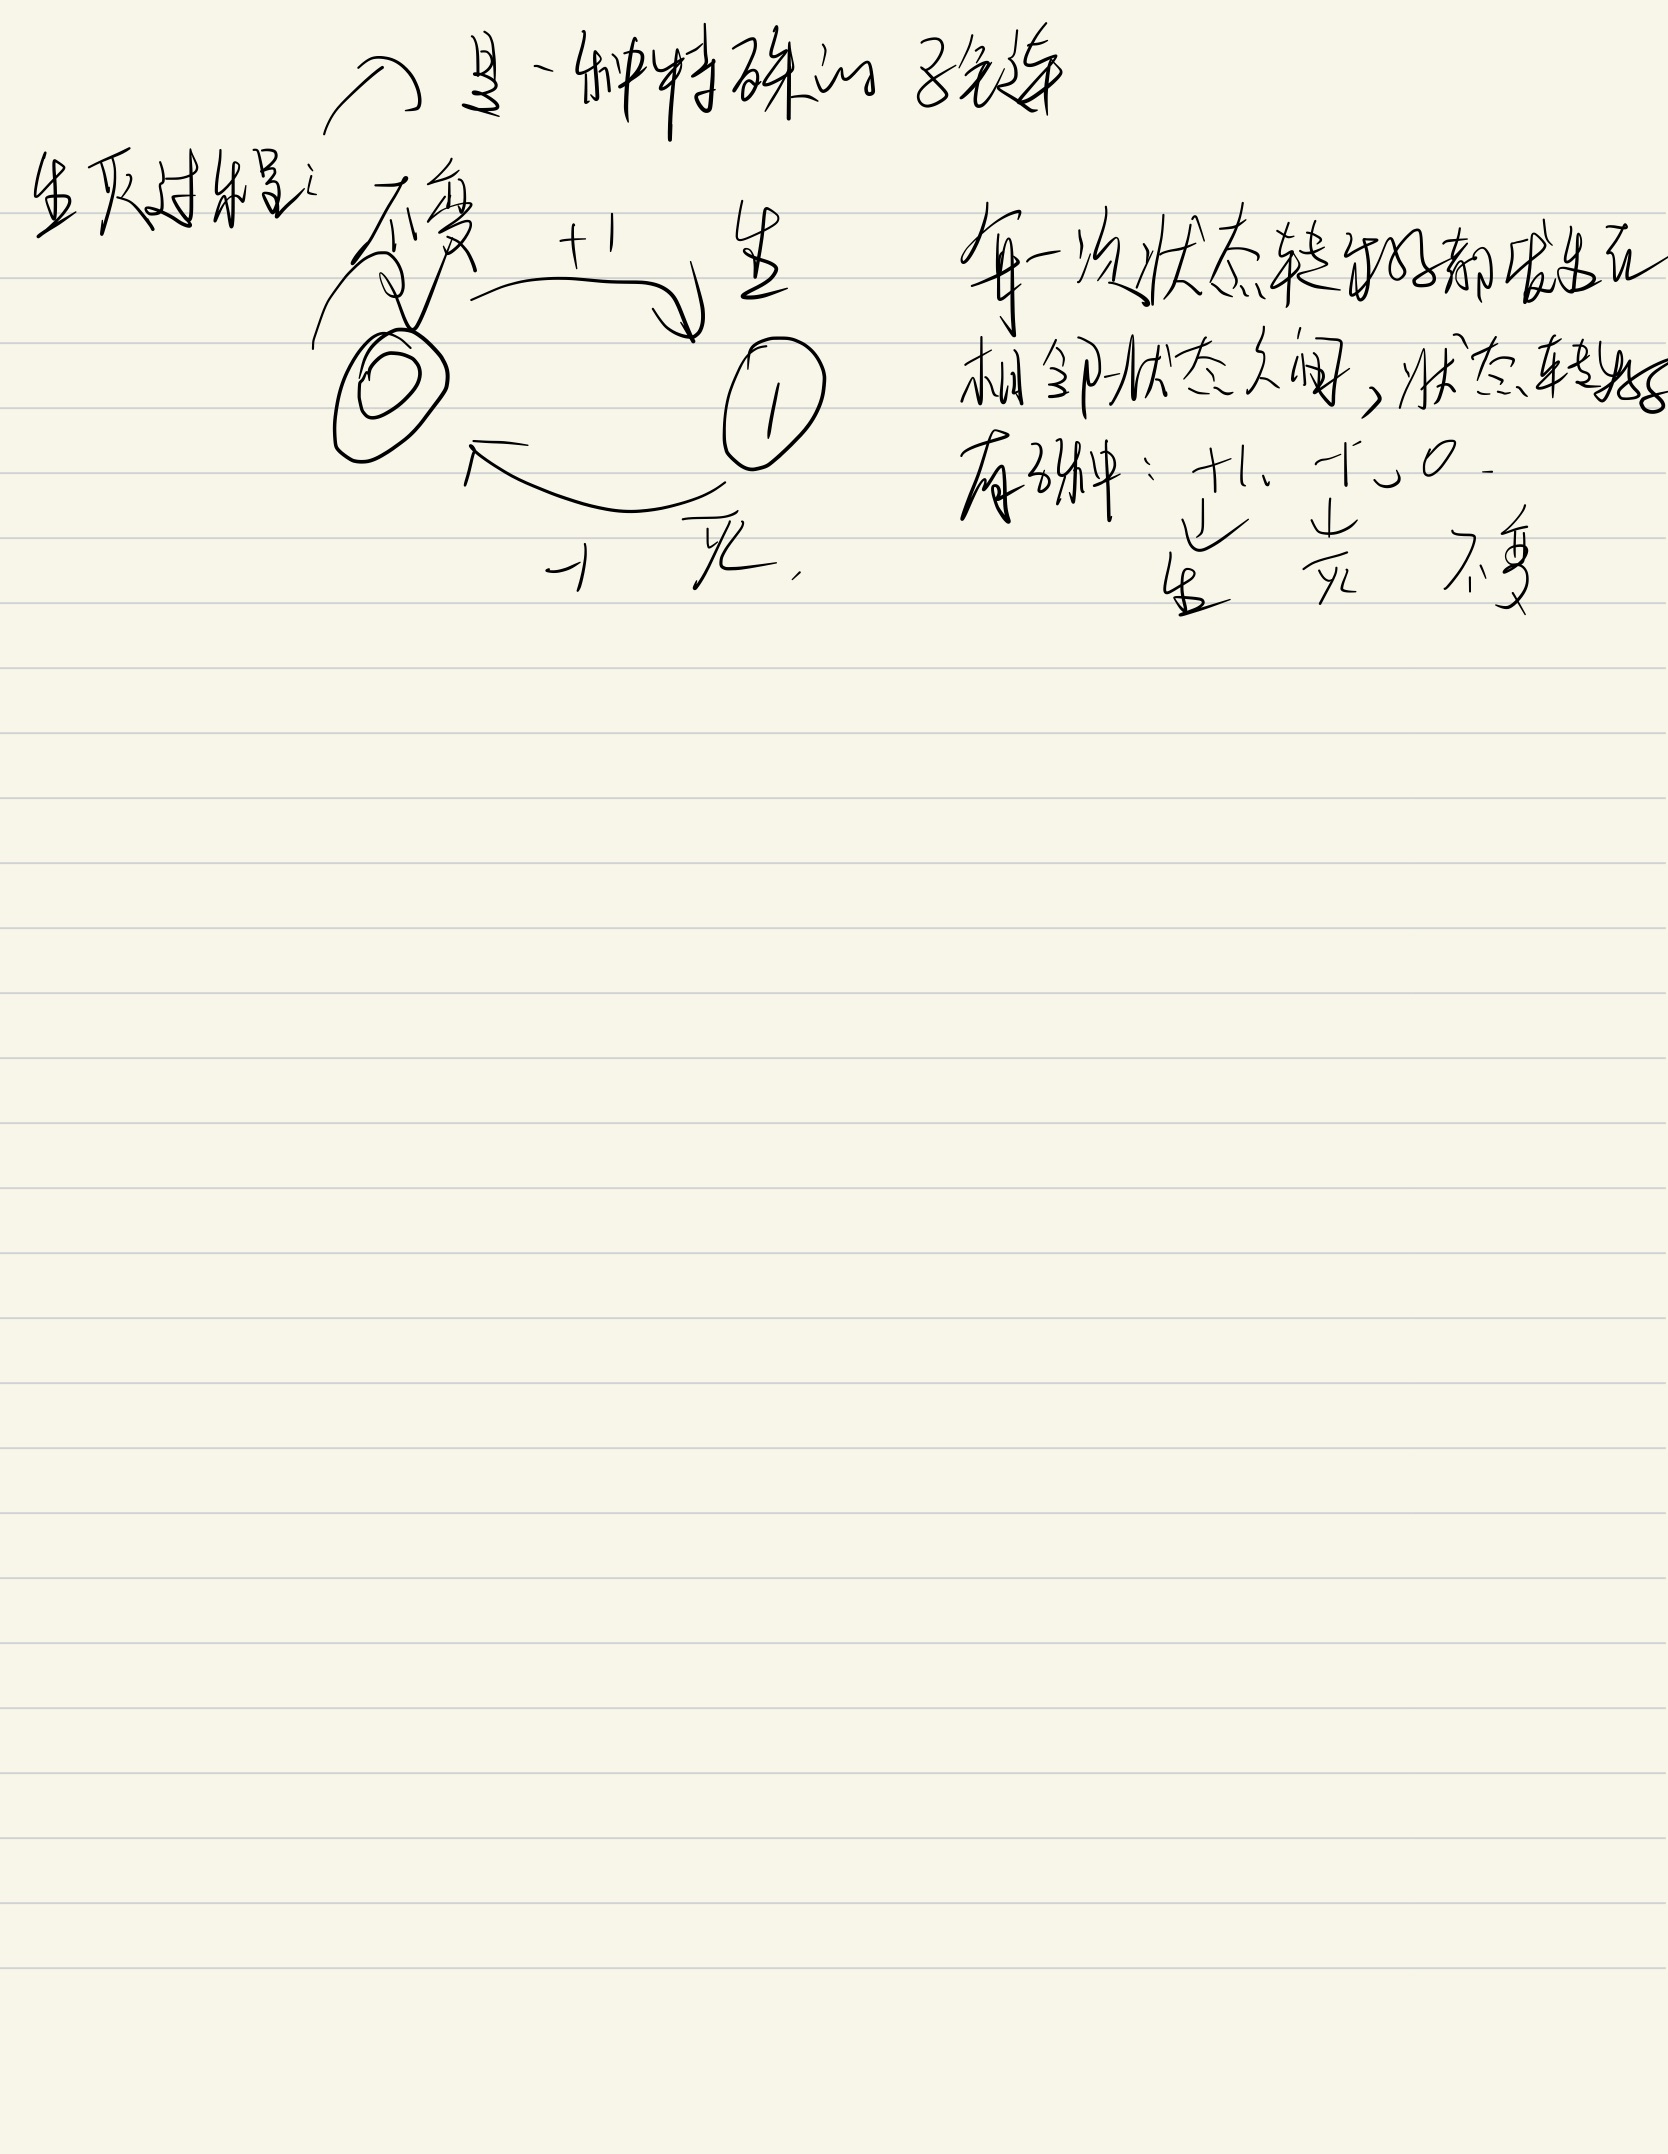 是一种特殊的
生灭过程:
不变
+1
生
0
1
-1
死.
每一次状态转移都发生在
相邻状态之间,状态转移
有3种:+1、-1、0.
生 死 不变